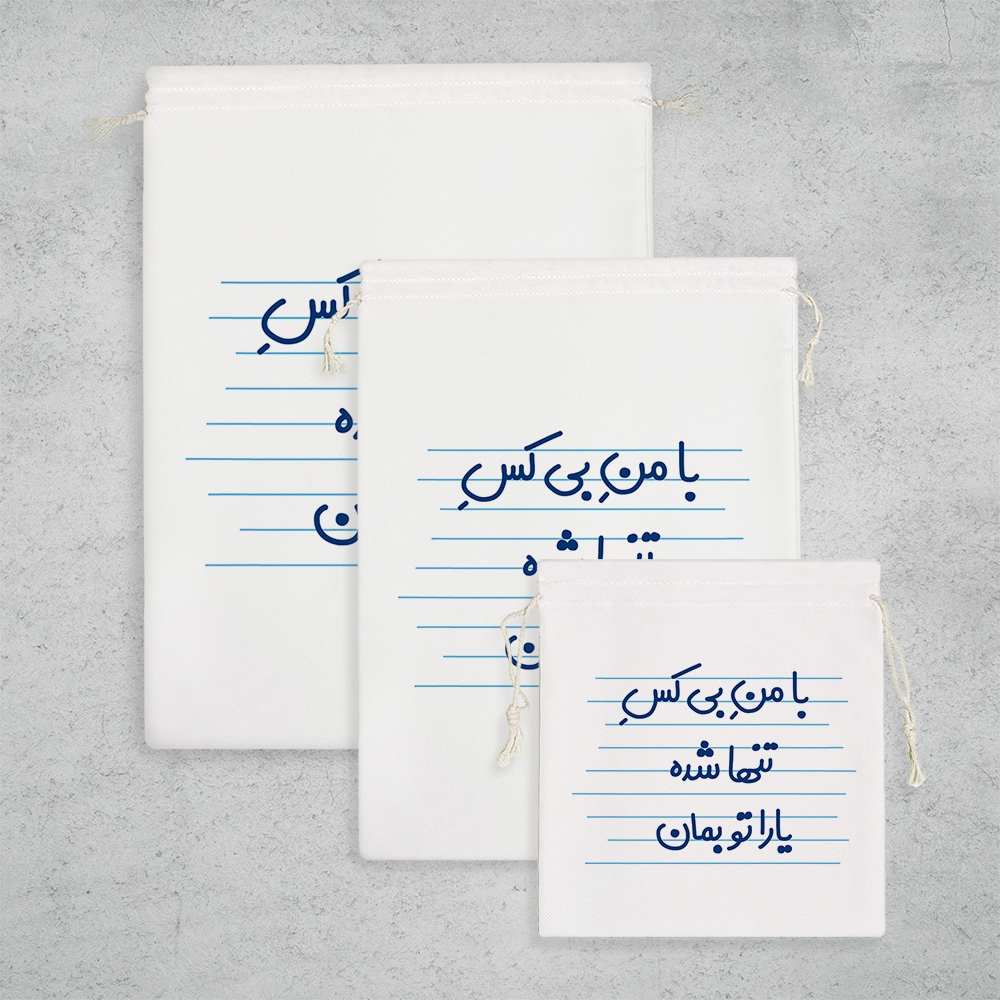 کسِ
ده
ن
با منِ بی کسِ
تنها شده
ن
با منِ بی کسِ
تنها شده
یارا تو بمان